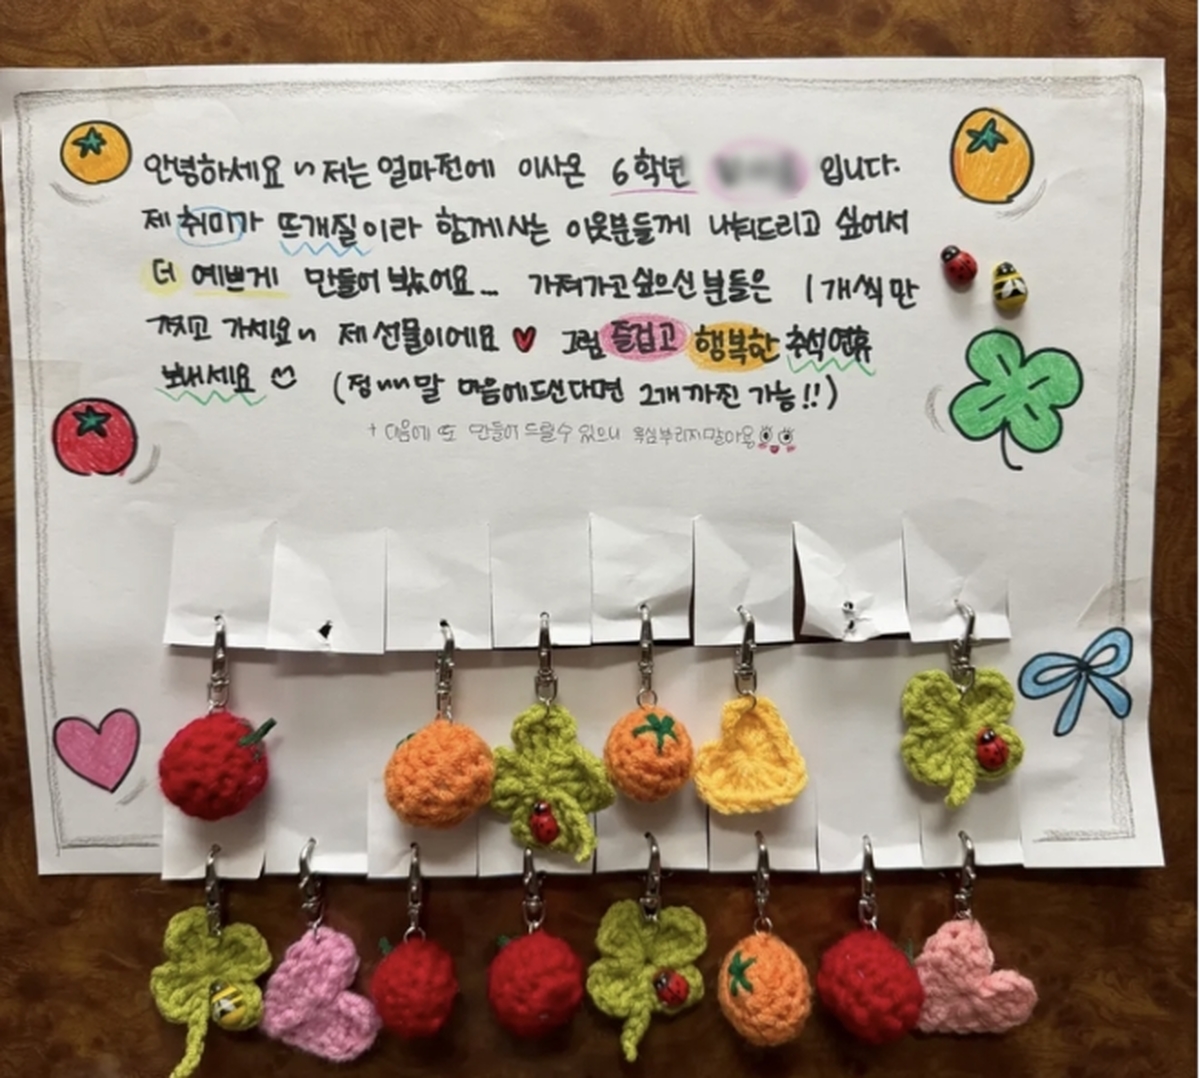 안녕하세요~ 저는 얼마전에 이사온 6학년 입니다.
제 취미가 뜨개질이라 함께사는 이웃분들께 나눠드리고 싶어서
더 예쁘게 만들어 봤어요... 가져가고싶으신 분들은 1개씩만
찢고 가세요~ 제 선물이에요 ♥ 그럼 즐겁고 행복한 추석연휴
보내세요 (정~~말 마음에드신다면 2개까진 가능!!)
+ 다음에 또 만들어 드릴수 있으니 욕심부리지말아용